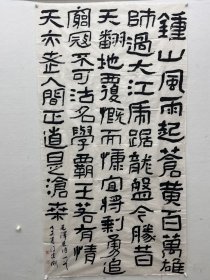 鍾山風雨起蒼黄百萬雄
師過大江虎踞龍盤今勝昔
天翻地覆慨而慷宜將剩勇追
窮寇不可沽名學霸王若有情
天亦老人間正道是滄桒
毛澤東詩一首